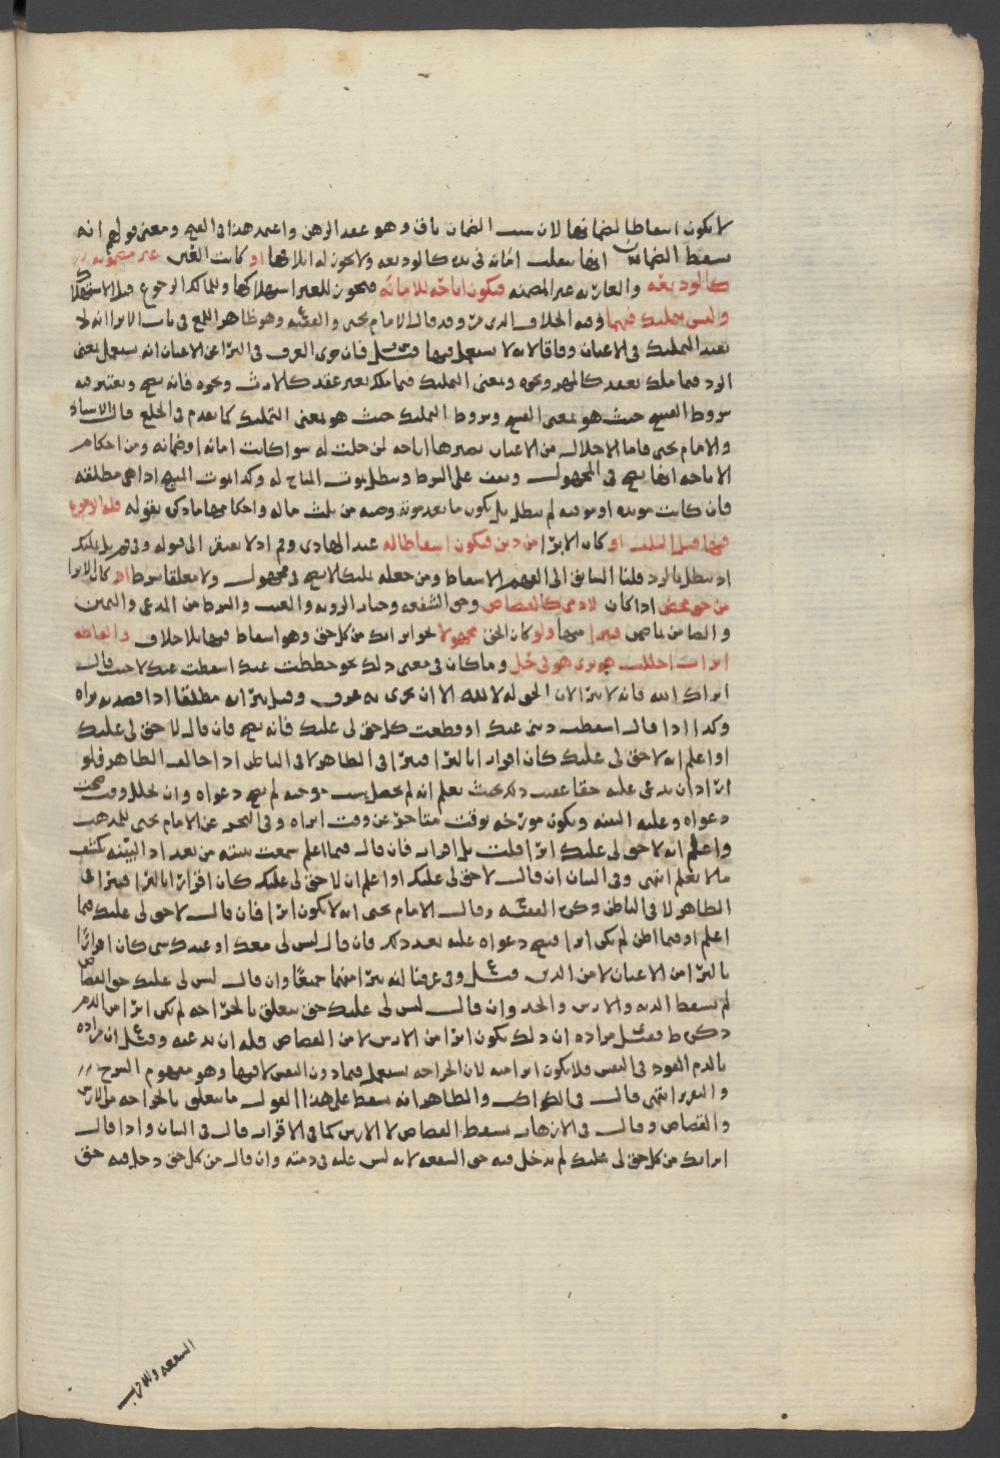 لا يكون اسقاطا لضمانها لان سبب الضمان باق وهو عقد الرهن واعتمد هذا في الفتح ومعنى قولهم انه
يسقط الضمان انها تنقلب امانه في يده كالوديعه ولا يجوز له اتلافها او كانت العين غير مضمونه
كالوديعه والعاريه غير المضمنه فيكون اباحه للامانه فيجوز للغير استهلاكها وللمالك الرجوع قبل الاستهلاك
وليس بتمليك فيهما وفيه الخلاف الذي مر وقد قال الامام يحيى والفقيه وهو ظاهر اللمع في باب الابرا انه لا
يفيد التمليك في الاعيان وفاقا لانه لا يستعمل فيها قيل فان جرى العرف في البرا عن الاعيان انه يستعمل بمعنى
الرد فيما ملك بعقد كالمهر ونحوه وبمعنى التمليك فيما ملك بغير عقد كالارث ونحوه فانه يصح ويعتبر فيه
شروط الفسخ حيث هو بمعنى الفسخ وشروط التمليك حيث هو بمعنى التمليك كما تقدم في الخلع قال الاستاذ
والامام يحيى فاما الاحلال من الاعيان يصيرها اباحه لمن حلت له سوا كانت امانه او ضمانه ومن احكام
الاباحه انها تصح في المجهول وتقف على الشرط وتبطل بموت المباح له وكذا بموت المبيح اذا هي مطلقه
فان كانت مؤبده او موقته لم تبطل بل يكون ما بعد موته وصيه من ثلث ماله واحكامها ما ذكره بقوله فله الرجوع
فيها قبل التلف او كان الابرا من دين فيكون اسقاطا له عند الهادي وم اذ لا يفتقر الى قبوله وق بل تمليك
اذ يبطل بالرد قلنا السابق الى الفهم الاسقاط ومن جعله تمليكا لا يصح في مجهول ولا معلقا بشرط او كان الابرا
من حق محض اذا كان لادمي كالقصاص وحق الشفعه وخيار الرويه والعيب والشرط من المدعي واليمين
والضامن بما ضمن فيبرا منها ولو كان الحق مجهولا نحو ابراتك من كل حق وهو اسقاط فيها بلا خلاف والفاظه
ابرات احللت هو بري هو في حل وما كان في معنى ذلك نحو حططت عنك اسقطت عنك لا حيث قال
ابراك الله فانه لا يبرا لان الحق له لا لله الا ان يجري به عرف وقيل يبرا به مطلقا اذا قصد به براه
وكذا اذا قال اسقطت ديني عنك او قطعت كل حق لي عليك فانه يصح فان قال لا حق لي عليك
او اعلم انه لا حق لي عليك كان اقرارا بالبرا فيبرا في الظاهر لا في الباطن اذا خالف الظاهر فلو
اراد ان يدعي عليه حقا عقيب ذلك بحيث يعلم انه لم يحصل سبب موجبه لم تصح دعواه وان تخلل وقت صحت
دعواه وعليه البينه ويكون مورخه بوقت متاخر عن وقت ابراه وفي البحر عن الامام يحيى للمذهب
واعلم انه لا حق لي عليك ابرا قلت بل اقرار فان قال فيما اعلم سمعت بينته من بعد اذ البينه تكشف
ما لا يعلم انتهى وفي البيان ان قال لا حق لي عليك او اعلم ان لا حق لي عليك كان اقرارا بالبرا فيبرا في
الظاهر لا في الباطن وذكره الفقيه وقال الامام يحيى انه لا يكون ابرا فان قال لا حق لي عليك فيما
اعلم او فيما اظن لم يكن ابرا فتصح دعواه عليه بعد ذلك فان قال ليس لي معك او عندك شي كان اقرارا
بالبرا من الاعيان لا من الدين قيل وفي عرفنا انه يبرا منهما جميعا وان قال ليس لي عليك حق القصاص
لم تسقط الديه والارش والحد وان قال ليس لي عليك حق يتعلق بالجراحه لم يكن ابرا من الدم
ذكره ط فقيل مراده ان ذلك يكون ابرا من الارش لا من القصاص فله ان يدعيه وقيل ان مراده
بالدم القود في النفس فلا يكون ابرا منه لان الجراحه تستعمل فيما دون النفس لا فيها وهو مفهوم الشرح
والتقرير انتهى قال في الكواكب والظاهر انه يسقط على هذا القول ما يتعلق بالجراحه من الارش
والقصاص وقال في الازهار يسقط القصاص لا الارش كما في الاقرار قال في البيان واذا قال
ابراتك من كل حق لي عليك لم يدخل فيه حق الشفعه لانه ليس عليه في ذمته وان قال من كل حق دخل فيه حق
الشفعه